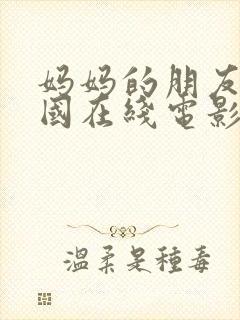 妈妈的朋友
國在綫電影
温柔是種毒